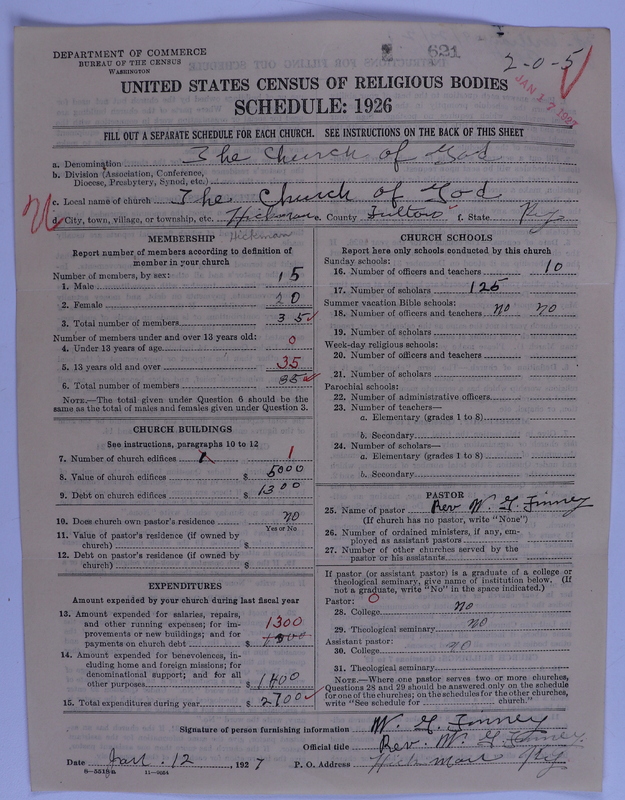 DEPARTMENT OF COMMERCE
BUREAU OF THE CENSUS
WASHINGTON
621
2-0-5
JAN 17 1927
UNITED STATES CENSUS OF RELIGIOUS BODIES
SCHEDULE: 1926
FILL OUT A SEPARATE SCHEDULE FOR EACH CHURCH. SEE INSTRUCTIONS ON THE BACK OF THIS SHEET
a. Denomination The Church of God
b. Division (Association, Conference,
Diocese, Presbytery, Synod, etc.)
c. Local name of church The Church of God
d. City, town, village, or township, etc. Hickman e. County Fulton f. State Ky
Hickman
MEMBERSHIP
Report number of members according to definition of
member in your church
Number of members, by sex:
1. Male 15
2. Female 20
3. Total number of members 35
Number of members under and over 13 years old:
4. Under 13 years of age 0
5. 13 years old and over 35
6. Total number of members 35
NOTE.—The total given under Question 6 should be the
same as the total of males and females given under Question 3.
CHURCH BUILDINGS
See instructions, paragraphs 10 to 12
7. Number of church edifices 1 1
8. Value of church edifices $ 5000
9. Debt on church edifices $ 1300
10. Does church own pastor's residence no
Yes or No
11. Value of pastor's residence (if owned by
church) $
12. Debt on pastor's residence (if owned by
church) $
EXPENDITURES
Amount expended by your church during last fiscal year
13. Amount expended for salaries, repairs,
and other running expenses; for im-
provements or new buildings; and for
payments on church debt $ 1300
14. Amount expended for benevolences, in-
cluding home and foreign missions; for
denominational support; and for all
other purposes $ 1400
15. Total expenditures during year $ 2700
CHURCH SCHOOLS
Report here only schools conducted by this church
Sunday schools:
16. Number of officers and teachers 10
17. Number of scholars 125
Summer vacation Bible schools:
18. Number of officers and teachers no no
19. Number of scholars
Week-day religious schools:
20. Number of officers and teachers
21. Number of scholars
Parochial schools:
22. Number of administrative officers
23. Number of teachers—
a. Elementary (grades 1 to 8)
b. Secondary
24. Number of scholars—
a. Elementary (grades 1 to 8)
b. Secondary
PASTOR
25. Name of pastor Rev W. G. Finney
(If church has no pastor, write "None")
26. Number of ordained ministers, if any, em-
ployed as assistant pastors
27. Number of other churches served by the
pastor or his assistants
If pastor (or assistant pastor) is a graduate of a college or
theological seminary, give name of institution below. (If
not a graduate, write "No" in the space indicated.)
Pastor: 0
28. College no
29. Theological seminary no
Assistant pastor:
30. College no
31. Theological seminary
NOTE.—Where one pastor serves two or more churches,
Questions 28 and 29 should be answered only on the schedule
for one of the churches; on the schedules for the other churches,
write "See schedule for church."
Signature of person furnishing information W. G. Finney
Official title Rev. W. G. Finney
Date Jan. 12, 1927 P. O. Address Hickman Ky
8—5518a 11—9054